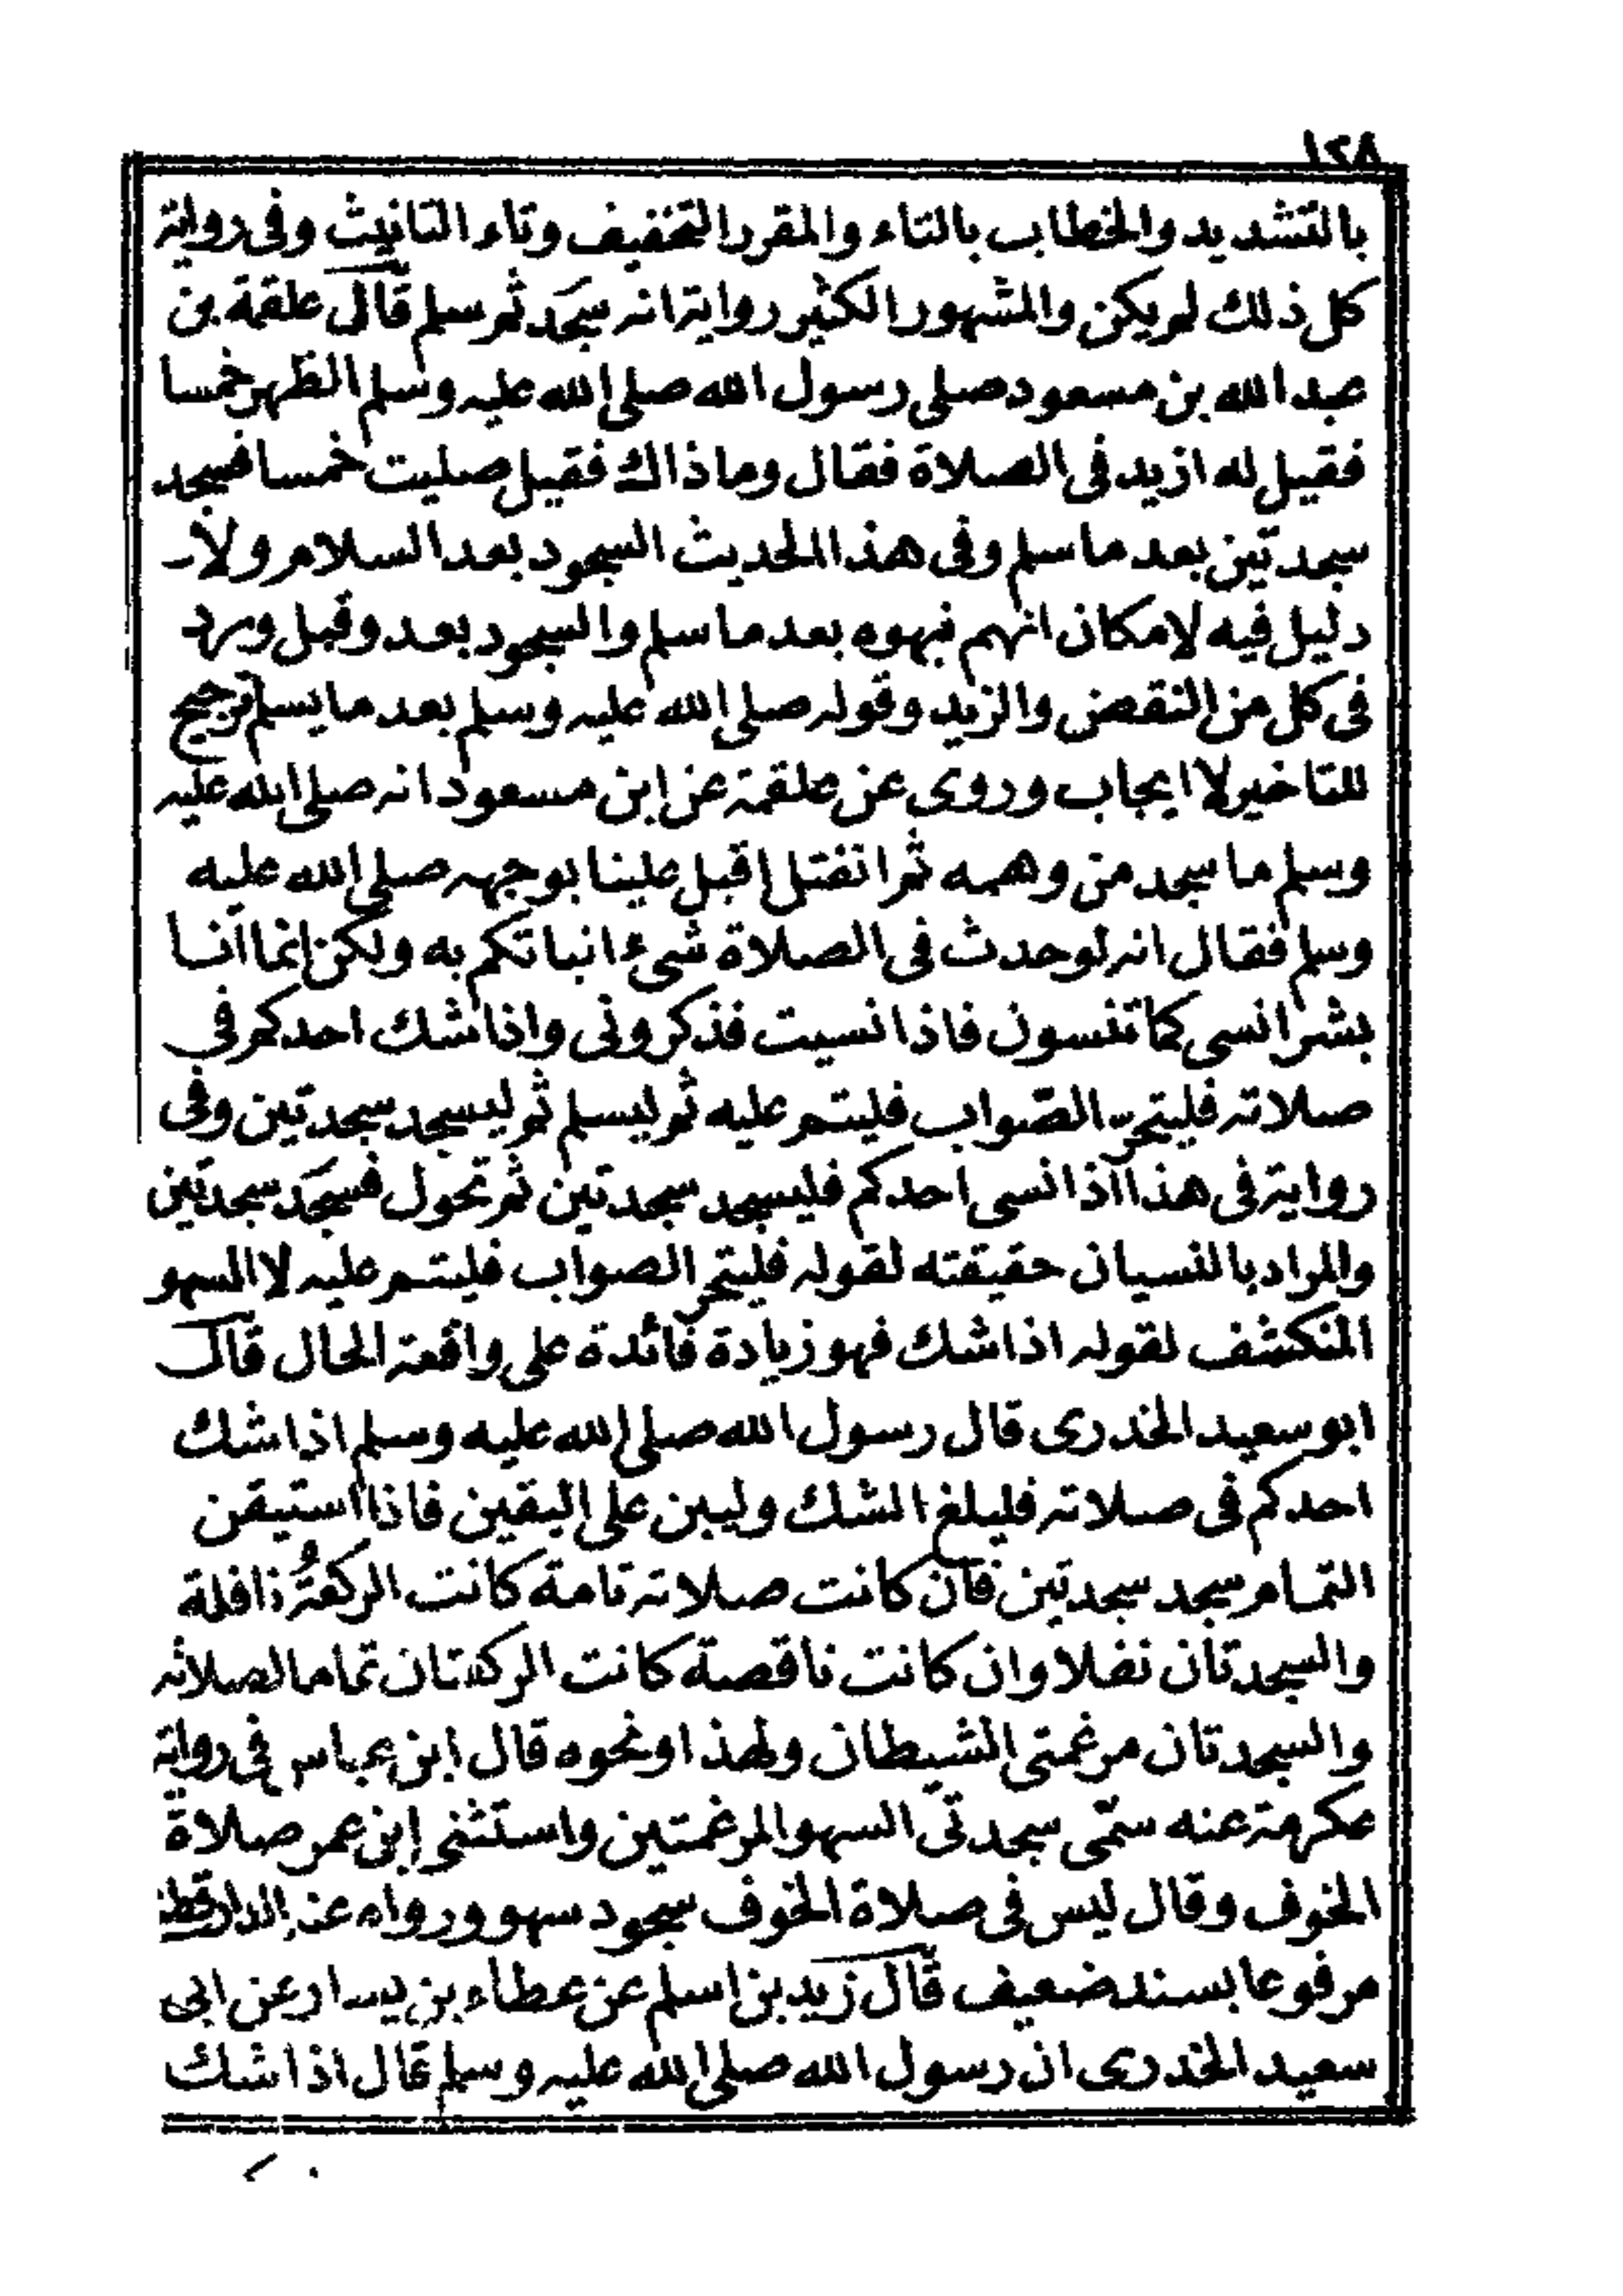 ١٢٨
بالتشديد والخطاب بالتاء والمقرر التخفيف وتاء التانيث وفى رواية
كل ذلك لم يكن والمشهور الكثير رواية انه سجد ثم سلم قال علقمة بن
عبد الله بن مسعود صلى رسول الله صلى الله عليه وسلم الظهر خمسا
فقيل له ازيد فى الصلاة فقال وما ذاك فقيل صليت خمسا فسجد
سجدتين بعد ما سلم وفى هذا الحديث السجود بعد السلام ولا
دليل فيه لامكان انهم نبهوه بعد ما سلم والسجود بعد وقبل ورد
فى كل من النقص والزيد وقوله صلى الله عليه وسلم بعد ما يسلم ترجيح
للتاخير لا ايجاب وروى عن علقمة عن ابن مسعود انه صلى الله عليه
وسلم ما سجد من وهمه ثم انفتل اقبل علينا بوجهه صلى الله عليه
وسلم فقال انه لو حدث فى الصلاة شىء انباتكم به ولكن انما انا
بشر انسى كما تنسون فاذا نسيت فذكرونى واذا شك احدكم فى
صلاته فليتحر الصواب فليتم عليه ثم ليسلم ثم ليسجد سجدتين وفى
رواية فى هذا اذا نسى احدكم فليسجد سجدتين ثم تحول فسجد سجدتين
والمراد بالنسيان حقيقته لقوله فليتحر الصواب فليتم عليه لا السهو
المنكشف لقوله اذا شك فهو زيادة فائدة على واقعة الحال قال
ابو سعيد الخدرى قال رسول الله صلى الله عليه وسلم اذا شك
احدكم فى صلاته فليلغ الشك وليبن على اليقين فاذا استيقن
التمام سجد سجدتين فان كانت صلاته تامة كانت الركعةُ نافلة
والسجدتان نفلا وان كانت ناقصة كانت الركعتان تماما لصلاته
والسجدتان مرغمتى الشيطان ولهذا ونحوه قال ابن عباس فى رواية
عكرمة عنه سمّى سجدتىّ السهو المرغمتين واستثنى ابن عمر صلاة
الخوف وقال ليس فى صلاة الخوف سجود سهو ورواه عنه الدارقطنى
مرفوعا بسند ضعيف قال زيد بن اسلم عن عطاء بن يسار عن ابى
سعيد الخدرى ان رسول الله صلى الله عليه وسلم قال اذا شك